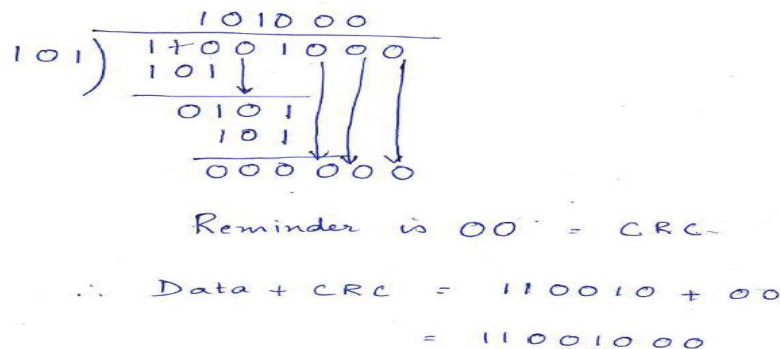 101000
101) 11001000
101
0101
101
000000
Reminder is 00 = CRC
∴ Data + CRC = 110010 + 00
= 11001000